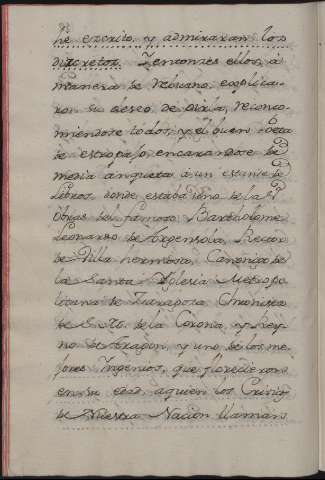 he escrito, y admiraran los
discretos. Entonces ellos, à
manera de rebuzno, explica-
ron su deseo de oirla, recono-
miendose todos, y el buen Poeta
de estropajo, encarandose
media anqueta à un estante de
Libros, donde estaba
Obras del famoso Bartholome
Leonardo de Argensola, Rector
de Villa hermosa, Canonigo de
la Santa Iglesia Metropo-
litana de Zaragoza, Chronista
de S. M. de la Corona, y Rey-
no de Aragon, y uno de los me-
jores Ingenios, que florecieron
en su edad, a quien los Criticos
de Nuestra Nacion llaman